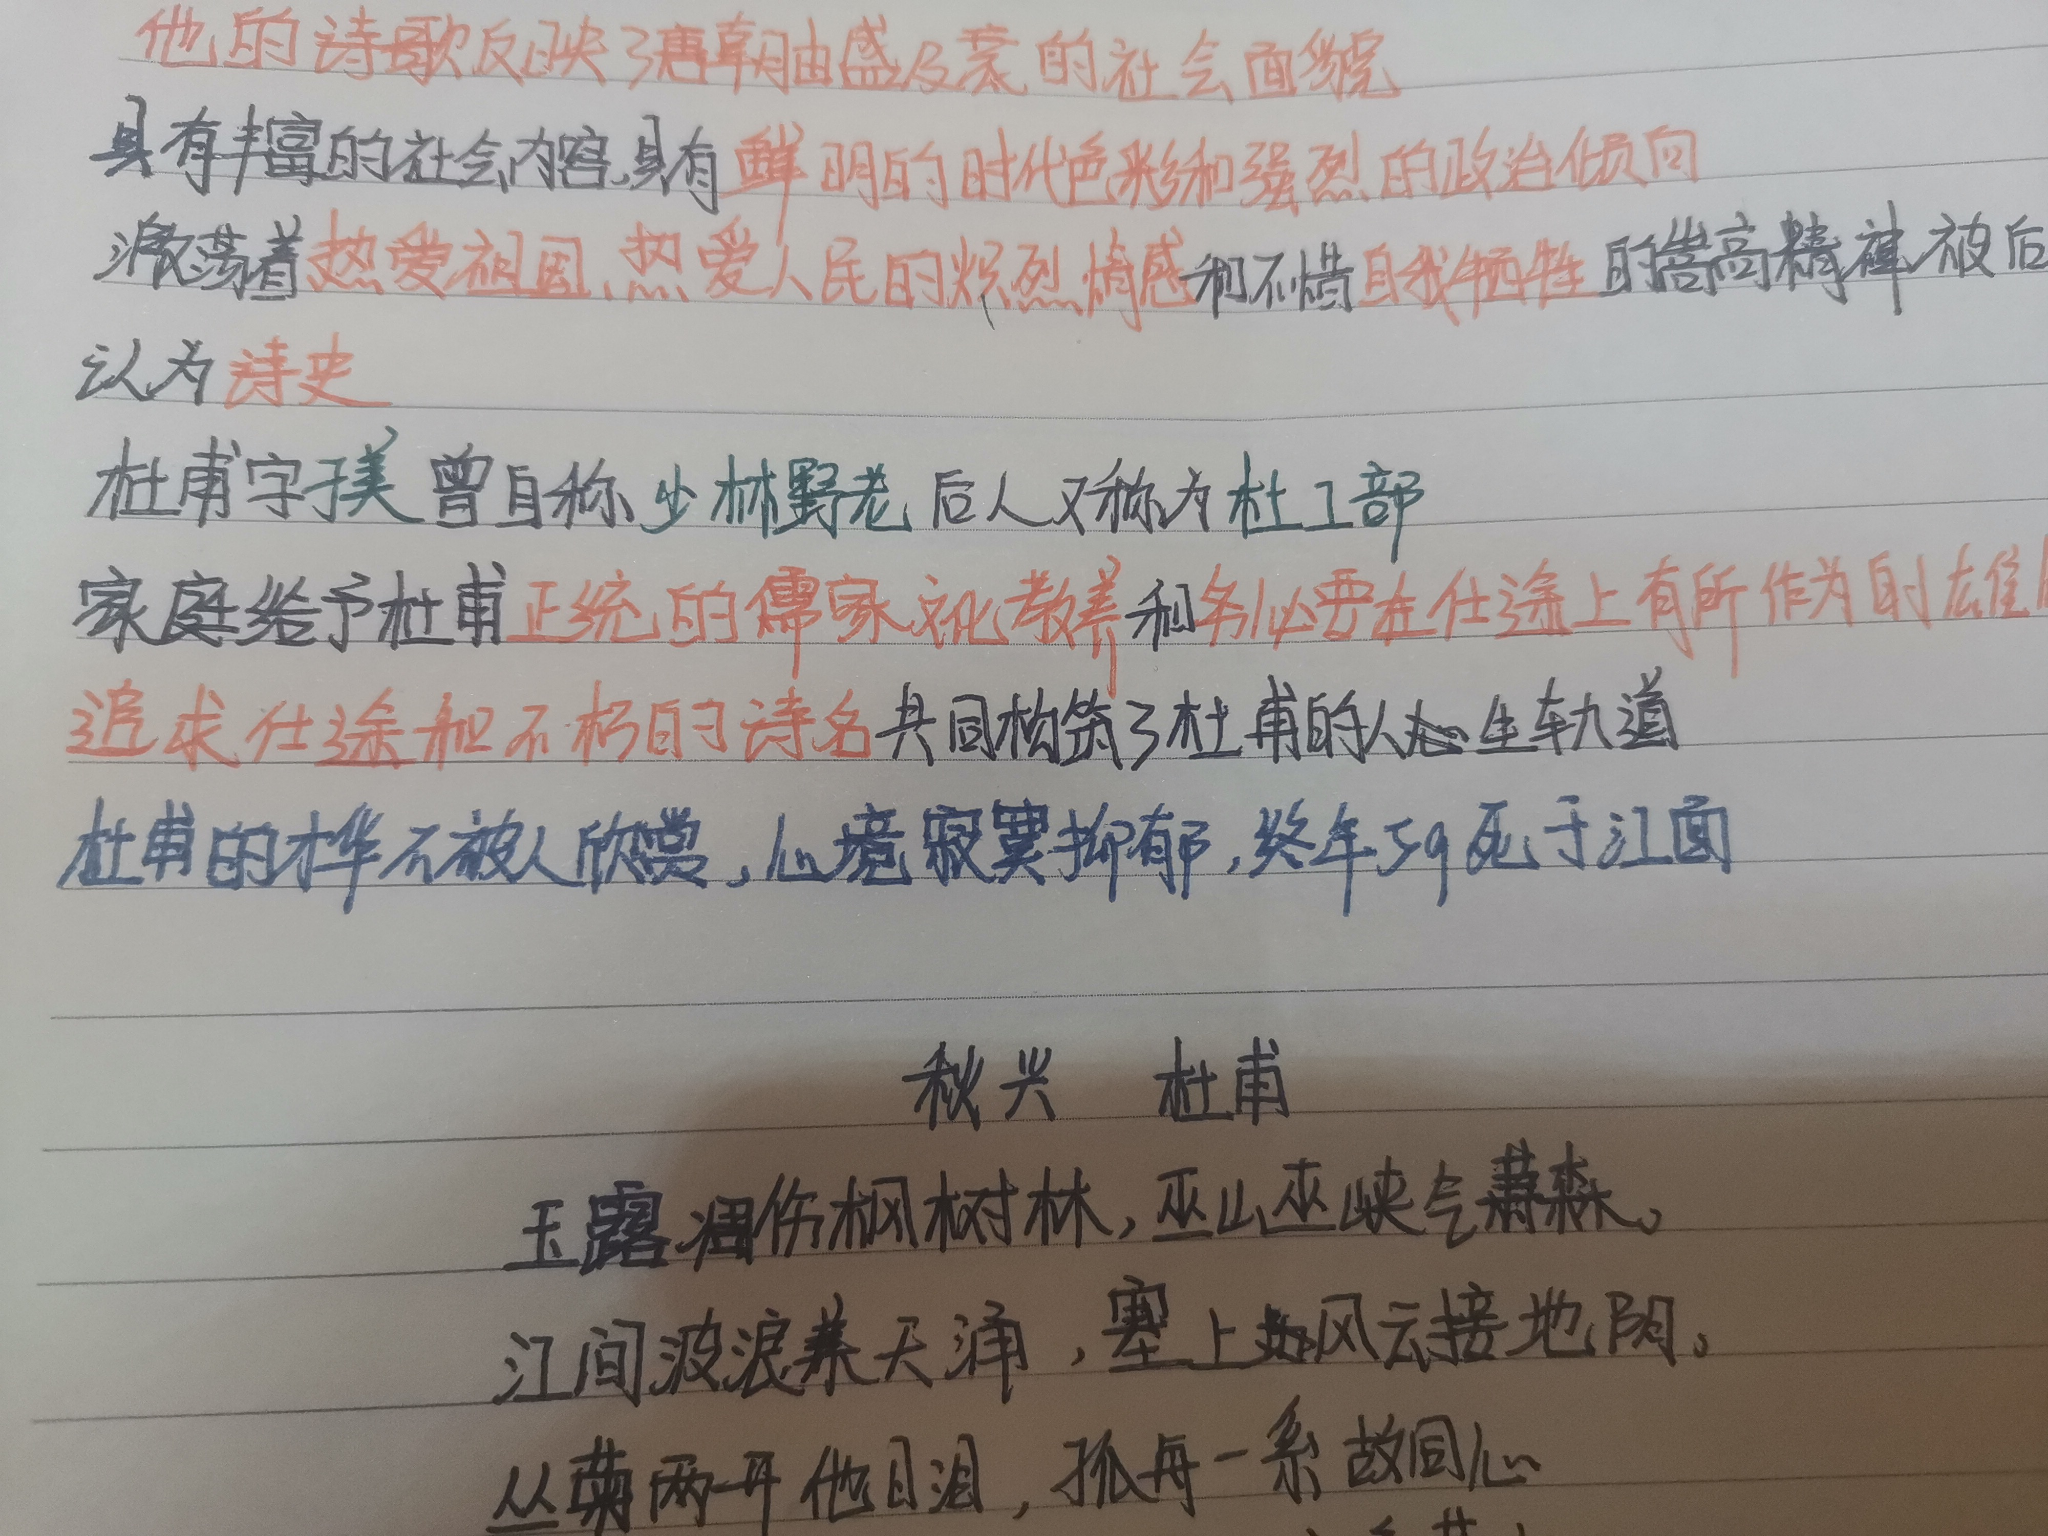 他的诗歌反映了唐朝由盛及衰的社会面貌
具有丰富的社会内容,具有鲜明的时代色彩和强烈的政治倾向
激荡着热爱祖国、热爱人民的炽烈情感和不惜自我牺牲的崇高精神被后
认为诗史
杜甫字子美 曾自称少林野老 后人又称为杜工部
家庭给予杜甫正统的儒家文化教养和务必要在仕途上有所作为的雄
追求仕途和不朽的诗名共同构筑了杜甫的人生轨道
杜甫的才华不被人欣赏,心境寂寞抑郁,终年59死于江面
秋兴 杜甫
玉露凋伤枫树林,巫山巫峡气萧森。
江间波浪兼天涌,塞上风云接地阴。
丛菊两开他日泪,孤舟一系故园心